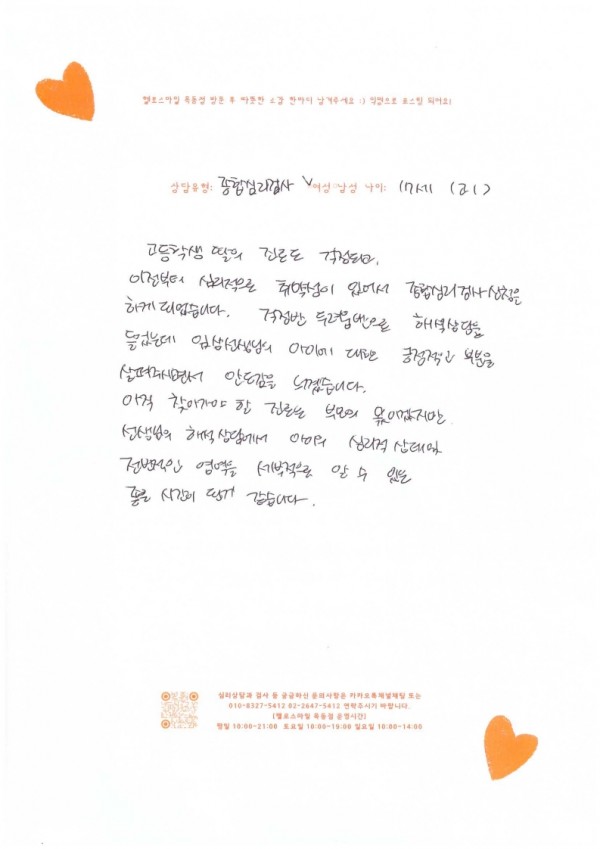 헬로스마일 목동점 방문 후 따뜻한 소감 한마디 남겨주세요 :) 익명으로 포스팅 되어요!
상담유형: 종합심리검사 V여성 ○남성 나이: 17세 (고1)
고등학생 딸의 진로도 걱정되고,
이전부터 심리적으로 취약성이 있어서 종합심리검사 신청을
하게 되었습니다. 걱정반 두려움반으로 해석상담을
들었는데 임상선생님의 아이에 대한 긍정적인 부분을
살펴주시면서 안도감을 느꼈습니다.
아직 찾아가야 할 진로는 부모의 몫이겠지만
선생님의 해석 상담에서 아이의 심리적 상태와
전반적인 영역을 세부적으로 알 수 있는
좋은 시간이 된거 같습니다.
심리상담과 검사 등 궁금하신 문의사항은 카카오톡채널채팅 또는
010-8327-5412 02-2647-5412 연락주시기 바랍니다.
[헬로스마일 목동점 운영시간]
평일 10:00-21:00 토요일 10:00-19:00 일요일 10:00-14:00